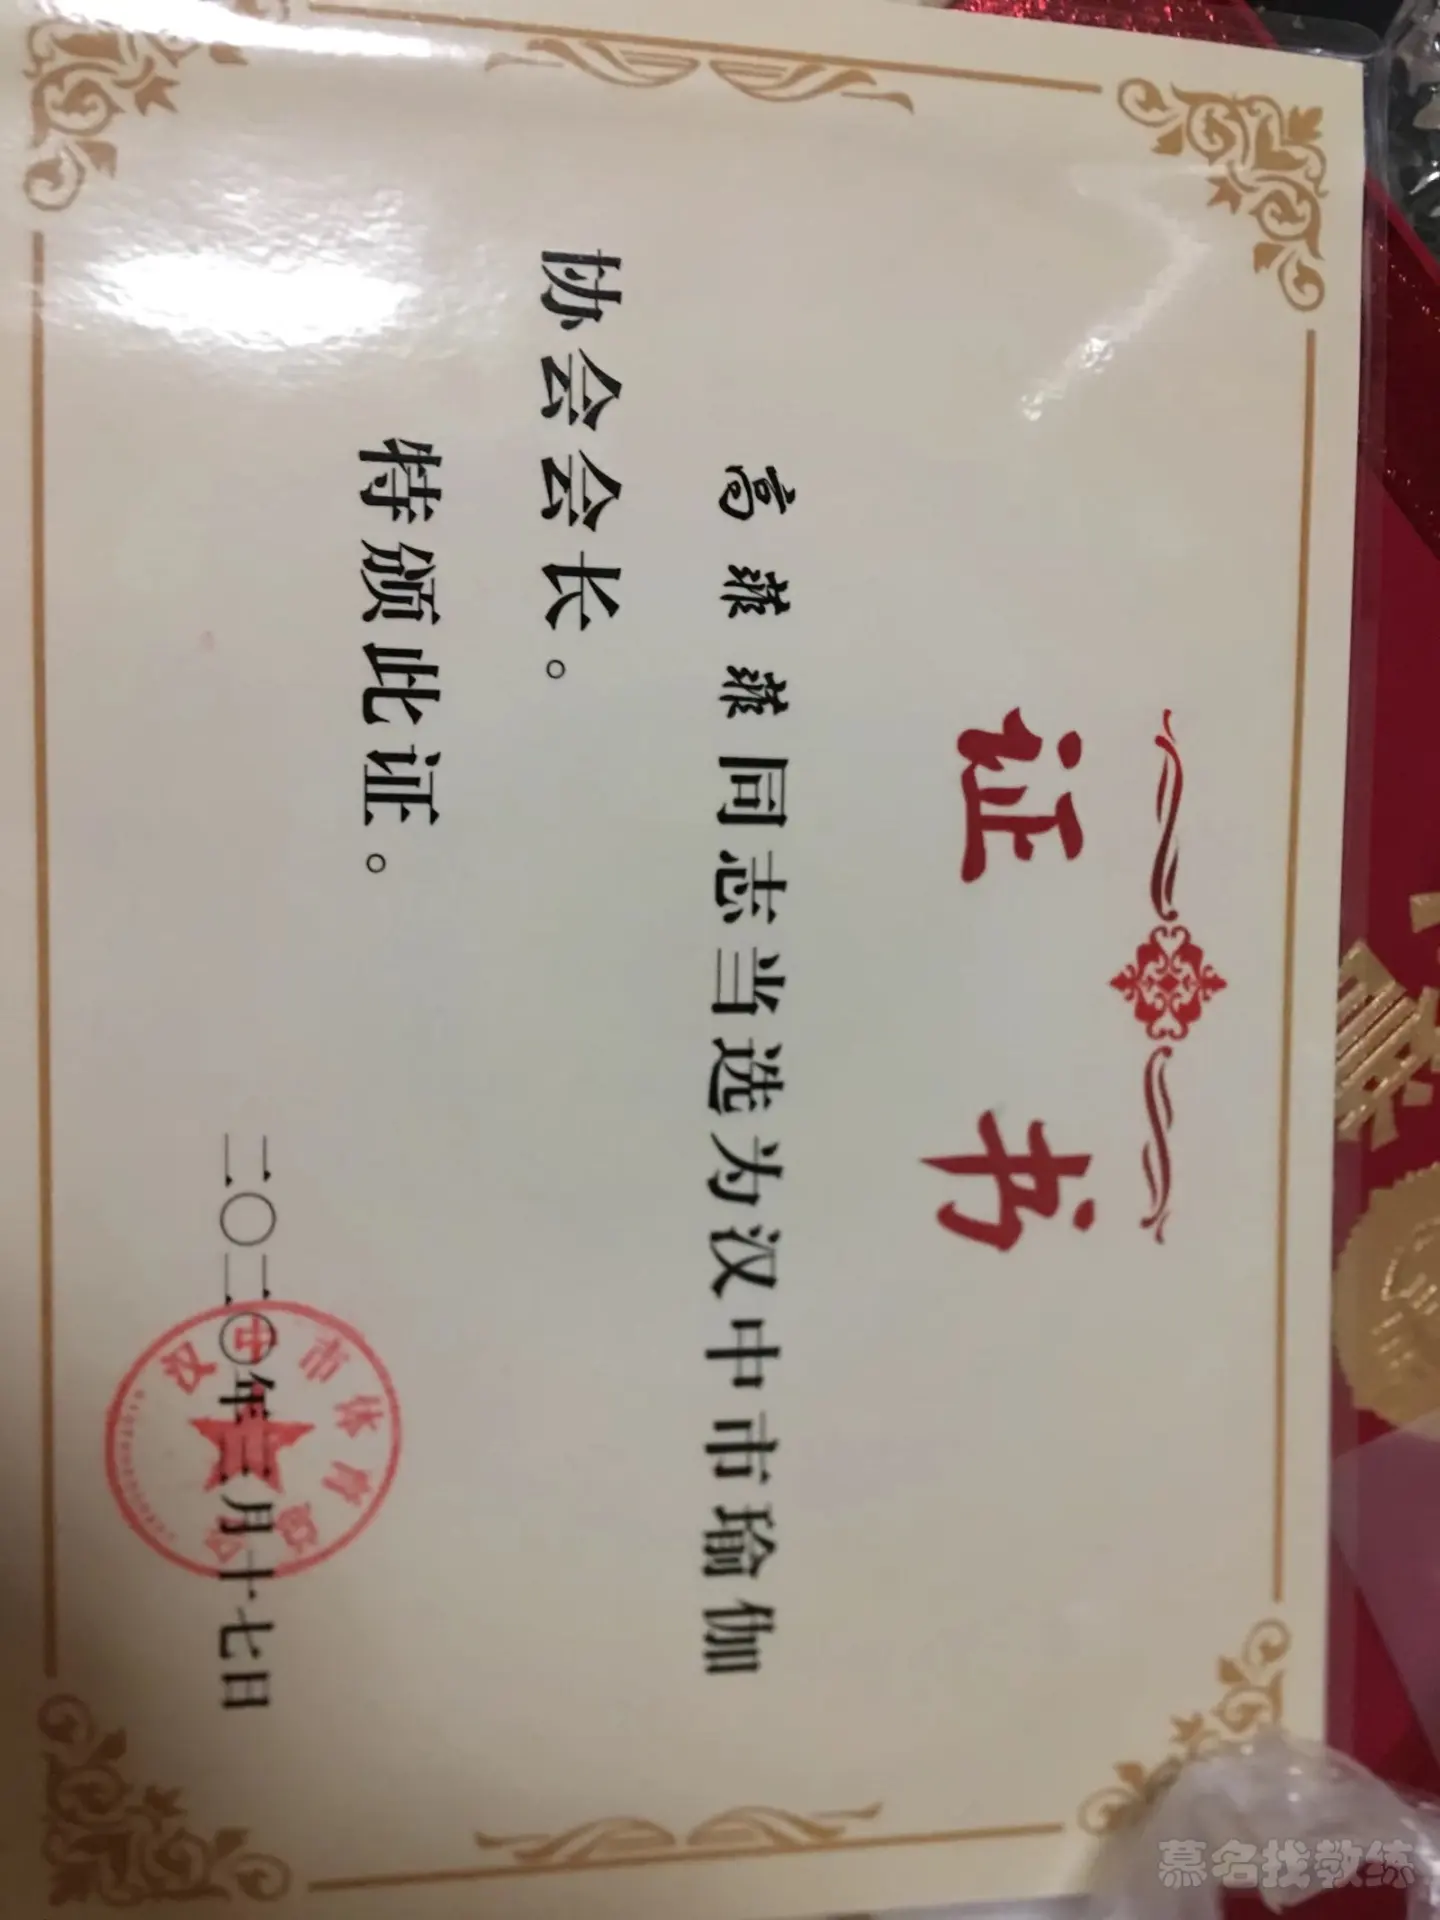 证书
高菲菲同志当选为汉中市瑜伽
协会会长。
特颁此证。
二〇二〇年三月十七日
汉中市体育总会
慕名找教练